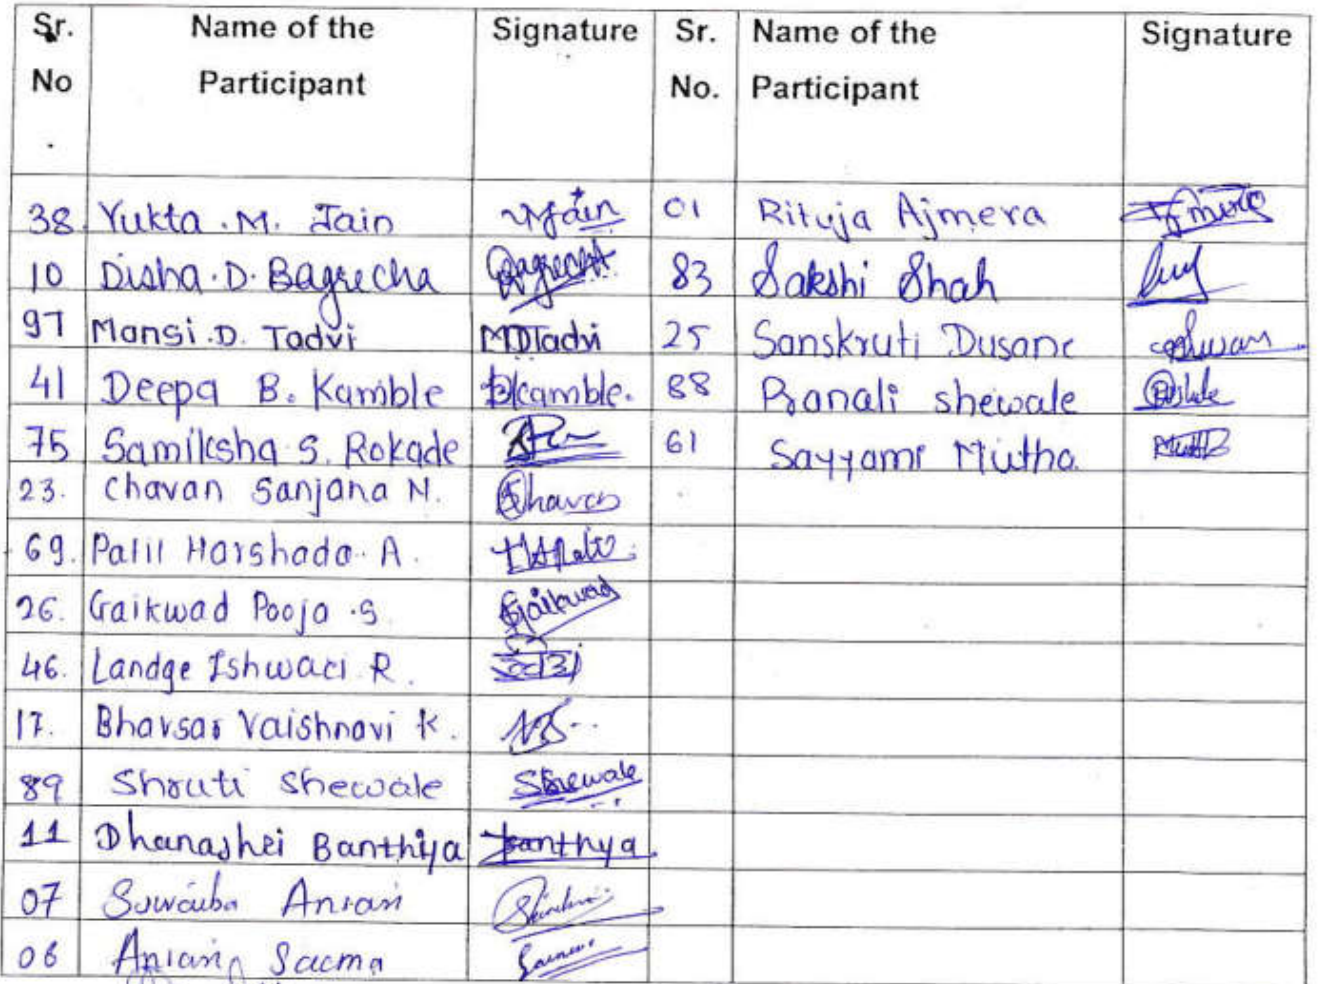 Sr. No . Name of the Participant Signature Sr. No. Name of the Participant Signature
38 Yukta . M. Jain YJain 01 Rituja Ajmera
10 Disha . D. Bagrecha Bagrecha 83 Sakshi Shah
97 Mansi . D. Tadvi MDTadvi 25 Sanskruti Dusane
41 Deepa B. Kamble Bkamble. 88 Pranali shewale
75 Samiksha S. Rokade 61 Sayyami Mutha
23. Chavan Sanjana N. Chavan
69. Patil Harshada . A. HAPatil
26. Gaikwad Pooja . S. Gaikwad
46. Landge Ishwari R.
17. Bhavsar Vaishnavi K.
89 Shruti Shewale Shewale
11 Dhanashri Banthiya Banthya
07
06